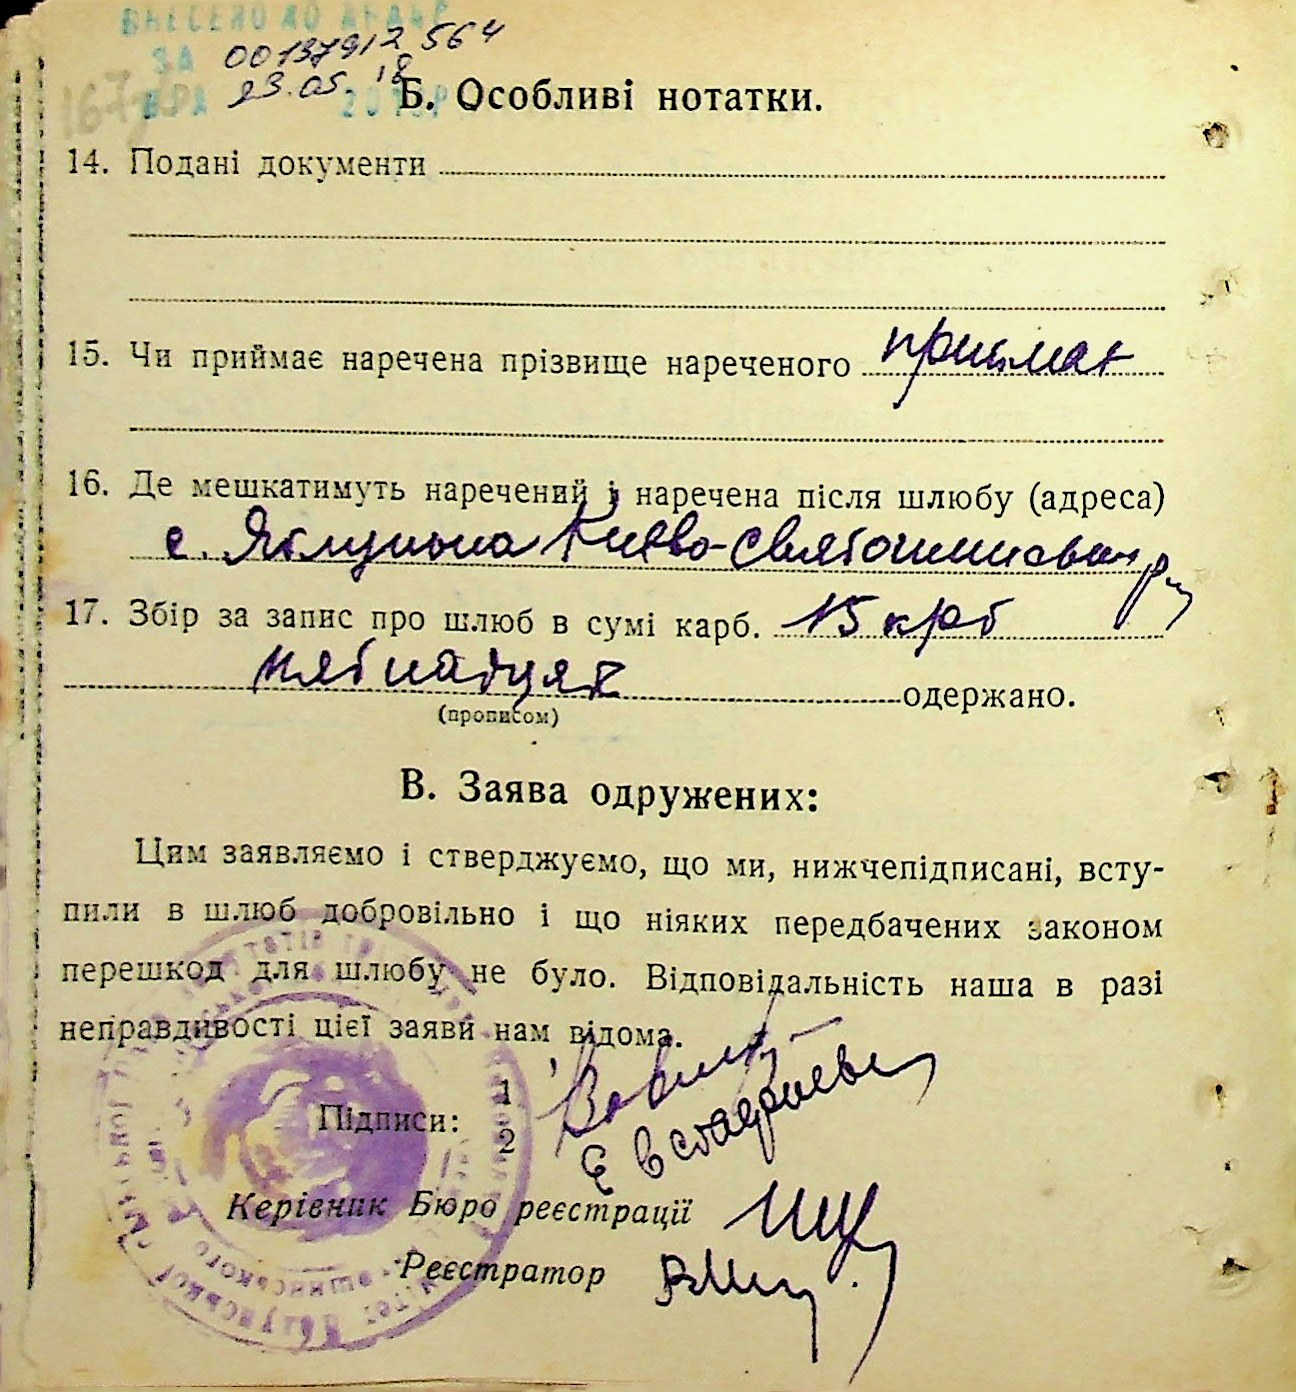 ВНЕСЕНО ДО ДРАЦС
ЗА 00137912564
23.05.18
Б. Особливі нотатки.
14. Подані документи
15. Чи приймає наречена прізвище нареченого приймає
16. Де мешкатимуть наречений і наречена після шлюбу (адреса)
с. Яблунька Києво-Святошинськ р-н
17. Збір за запис про шлюб в сумі карб. 15 крб
пятнадцят одержано.
(прописом)
В. Заява одружених:
Цим заявляємо і стверджуємо, що ми, нижчепідписані, всту-
пили в шлюб добровільно і що ніяких передбачених законом
перешкод для шлюбу не було. Відповідальність наша в разі
неправдивості цієї заяви нам відома.
Підписи: 1
2 Євстафиева
Керівник Бюро реєстрації
Реєстратор